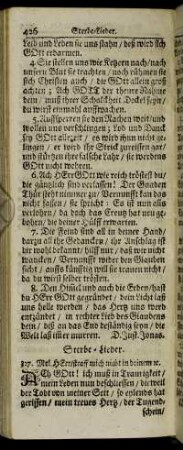 426 Sterbe-Lieder.
Leib und Leben sie uns stahn / deß wird sich
GOtt erbarmen.
4. Sie stellen uns wie Ketzern nach / nach
unserm Blut sie trachten / noch rühmen sie
sich Christen auch / die GOtt allein groß
achten; Ach GOTT der theure Nahme
dein / muß ihrer Schalckheit Deckel seyn /
du wirst einmahl auffwachen.
5. Auffsperren sie den Rachen weit / und
wollen uns verschlingen; Lob und Danck
sey GOtt allezeit / es wird ihm nicht ge-
lingen / er wird ihr Strick zureissen gar /
und stürtzen ihre falsche Lahr / sie werdens
GOtt nicht wehren.
6. Ach HErr GOtt wie reich tröstest du /
die gäntzlich sind verlassen! Der Gnaden
Thür steht nimmer zu / Vernunfft kan das
nicht fassen / sie spricht: Es ist nun alls
verlohren / da doch das Creutz hat neu ge-
bohren / die deiner Hülff erwarten.
7. Die Feind sind all in deiner Hand /
darzu all ihr Gedancken / ihr Anschlag ist
dir wohl bekandt / hilff nur / daß wir nicht
wancken: Vernunfft wieder den Glauben
ficht / auffs künftig will sie trauen nicht / da
du wirst selber trösten.
8. Den Himmel und auch die Erden / hast
du HErr GOtt gegründet / dein Licht laß
uns helle werden / das Hertz uns werd
entzündet / in rechter Lieb des Glaubens
dein / biß an das End beständig seyn / die
Welt laß immer murren. D. Just. Jonas.
Sterbe-Lieder.
Ach GOtt! ich muß in Traurigkeit /
mein Leben nun beschliessen / die weil
der Todt von meiner Seit / so eylends hat
gerissen / mein treues Hertz / der Tugend-
schein /